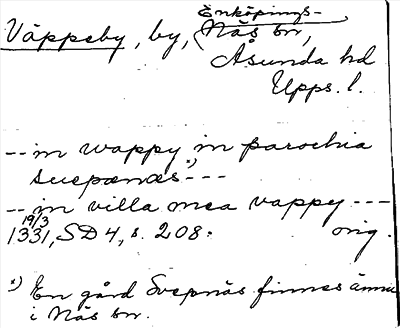 Väppeby, by, Enköpings-
Näs sn,
Åsunda hd
Upps. l.
-- in wappy in parochia
suepænæs *) ---
-- in villa mea vappy ---
19/3 1331, SD 4, s. 208. orig.
*) En gård Svepnäs finnes ännu
i Näs sn.